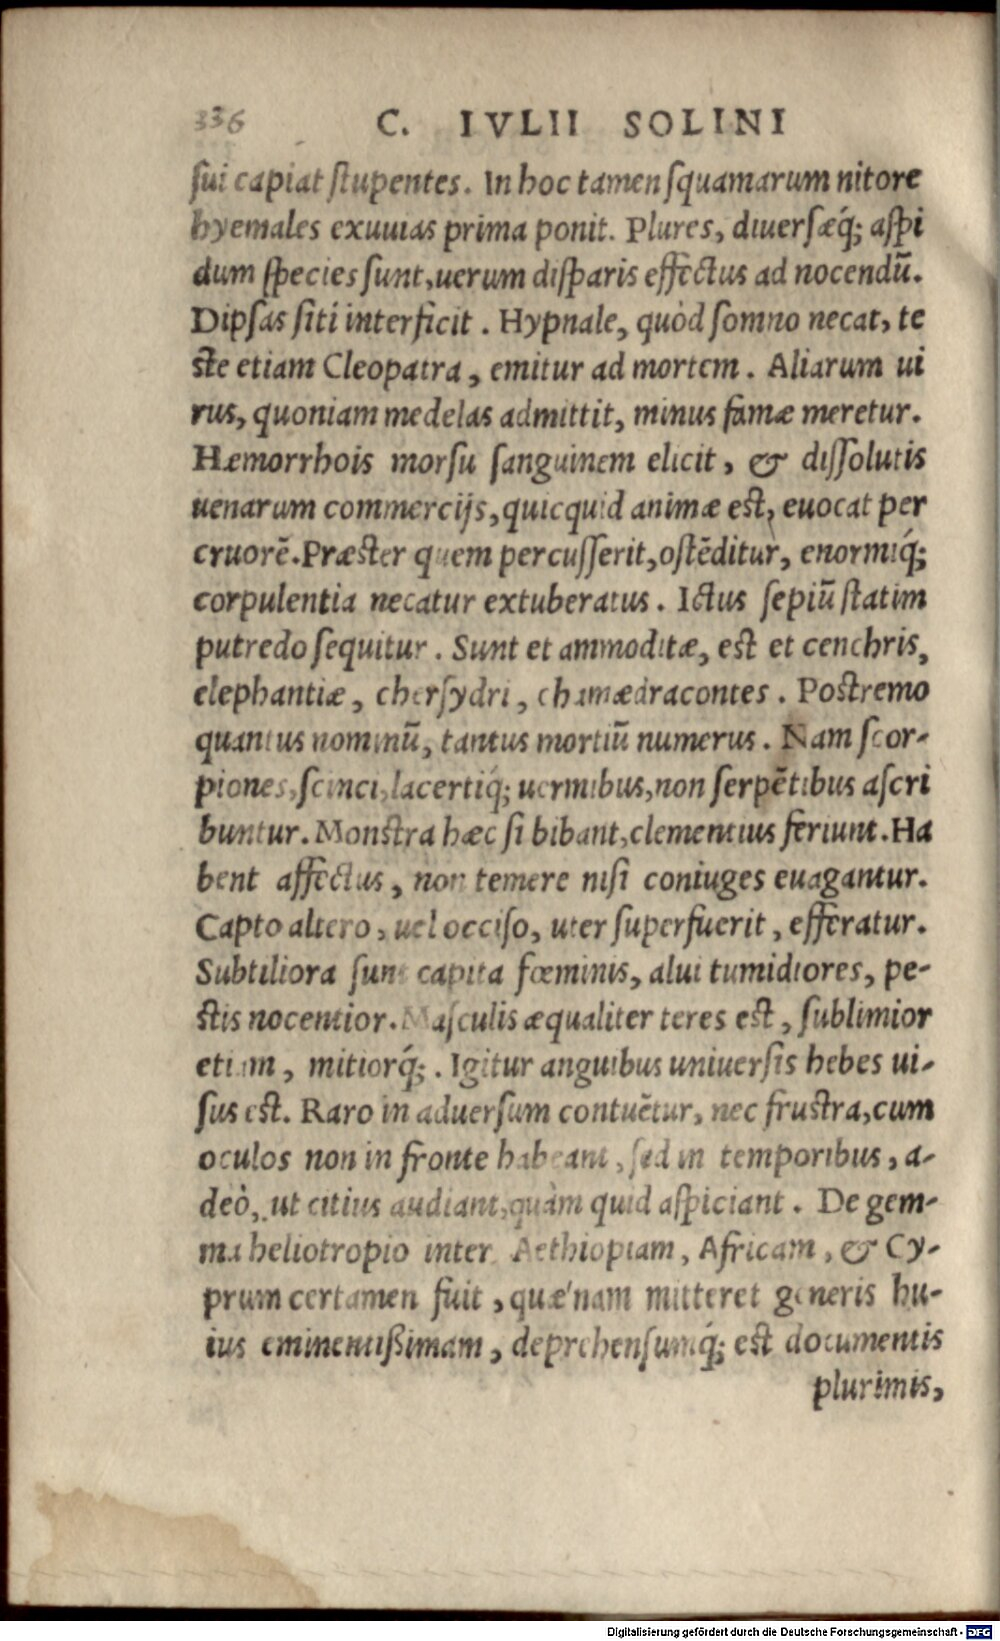 336 C. IVLII SOLINI
sui capiat stupentes. In hoc tamen squamarum nitore
hyemales exuuias prima ponit. Plures, diuersæq́; aspi
dum species sunt, uerum disparis effectus ad nocendū.
Dipsas siti interficit. Hypnale, quòd somno necat, te
ste etiam Cleopatra, emitur ad mortem. Aliarum ui
rus, quoniam medelas admittit, minus famæ meretur.
Hæmorrhois morsu sanguinem elicit, & dissolutis
uenarum commercijs, quicquid animæ est, euocat per
cruorē. Præster quem percusserit, ostēditur, enormiq́;
corpulentia necatur extuberatus. Ictus sepiū statim
putredo sequitur. Sunt et ammoditæ, est et cenchris,
elephantiæ, chersydri, chamædracontes. Postremo
quantus nominū, tantus mortiū numerus. Nam scor-
piones, scinci, lacertiq́; uermibus, non serpētibus ascri
buntur. Monstra hæc si bibant, clementius feriunt. Ha
bent affectus, non temere nisi coniuges euagantur.
Capto altero, uel occiso, uter superfuerit, efferatur.
Subtiliora sunt capita fœminis, alui tumidiores, pe-
stis nocentior. Masculis æqualiter teres est, sublimior
etiam, mitiorq́;. Igitur anguibus uniuersis hebes ui-
sus est. Raro in aduersum contuētur, nec frustra, cum
oculos non in fronte habeant, sed in temporibus, a-
deò, ut citius audiant, quàm quid aspiciant. De gem-
ma heliotropio inter Aethiopiam, Africam, & Cy-
prum certamen fuit, quæ'nam mitteret generis hu-
ius eminentißimam, deprehensumq́; est documentis
plurimis,
Digitalisierung gefördert durch die Deutsche Forschungsgemeinschaft - DFG